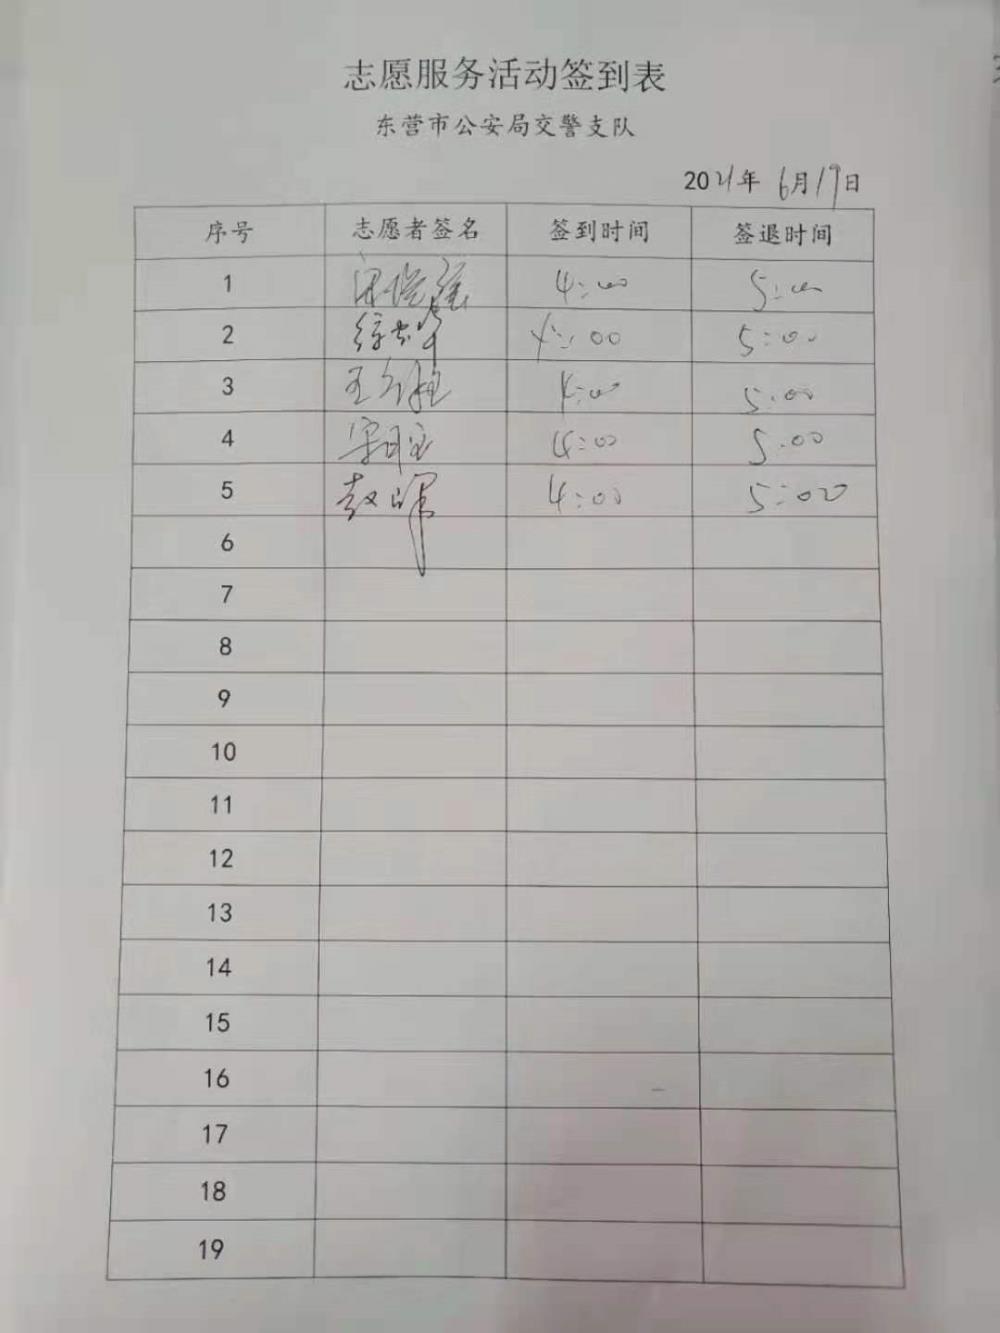 志愿服务活动签到表
东营市公安局交警支队
2021年 6月19日
序号 志愿者签名 签到时间 签退时间
1 4:00 5:00
2 4:00 5:00
3 王 4:00 5:00
4 4:00 5:00
5 赵晖 4:00 5:00
6
7
8
9
10
11
12
13
14
15
16
17
18
19